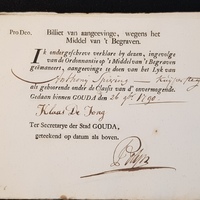 Pro Deo. Billiet van aangeevinge, wegens het
Middel van 't Begraven.
Ik ondergeschreve verklare by dezen, ingevolge
van de Ordonnantie op 't Middel van 't Begraven
geëmaneert, aangevinge te doen van het Lyk van
als gehoorende onder de Classis van d' onvermogende.
Gedaan binnen GOUDA den 26 1790
Klaas De Jong
Ter Secretarye der Stad GOUDA,
geteekend op datum als boven.